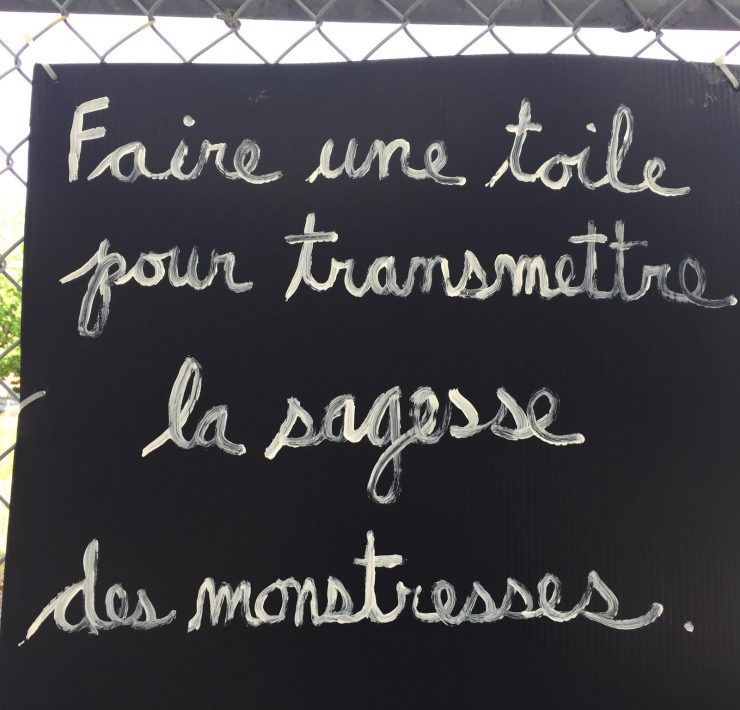 Faire une toile
pour transmettre
la sagesse
des monstresses.